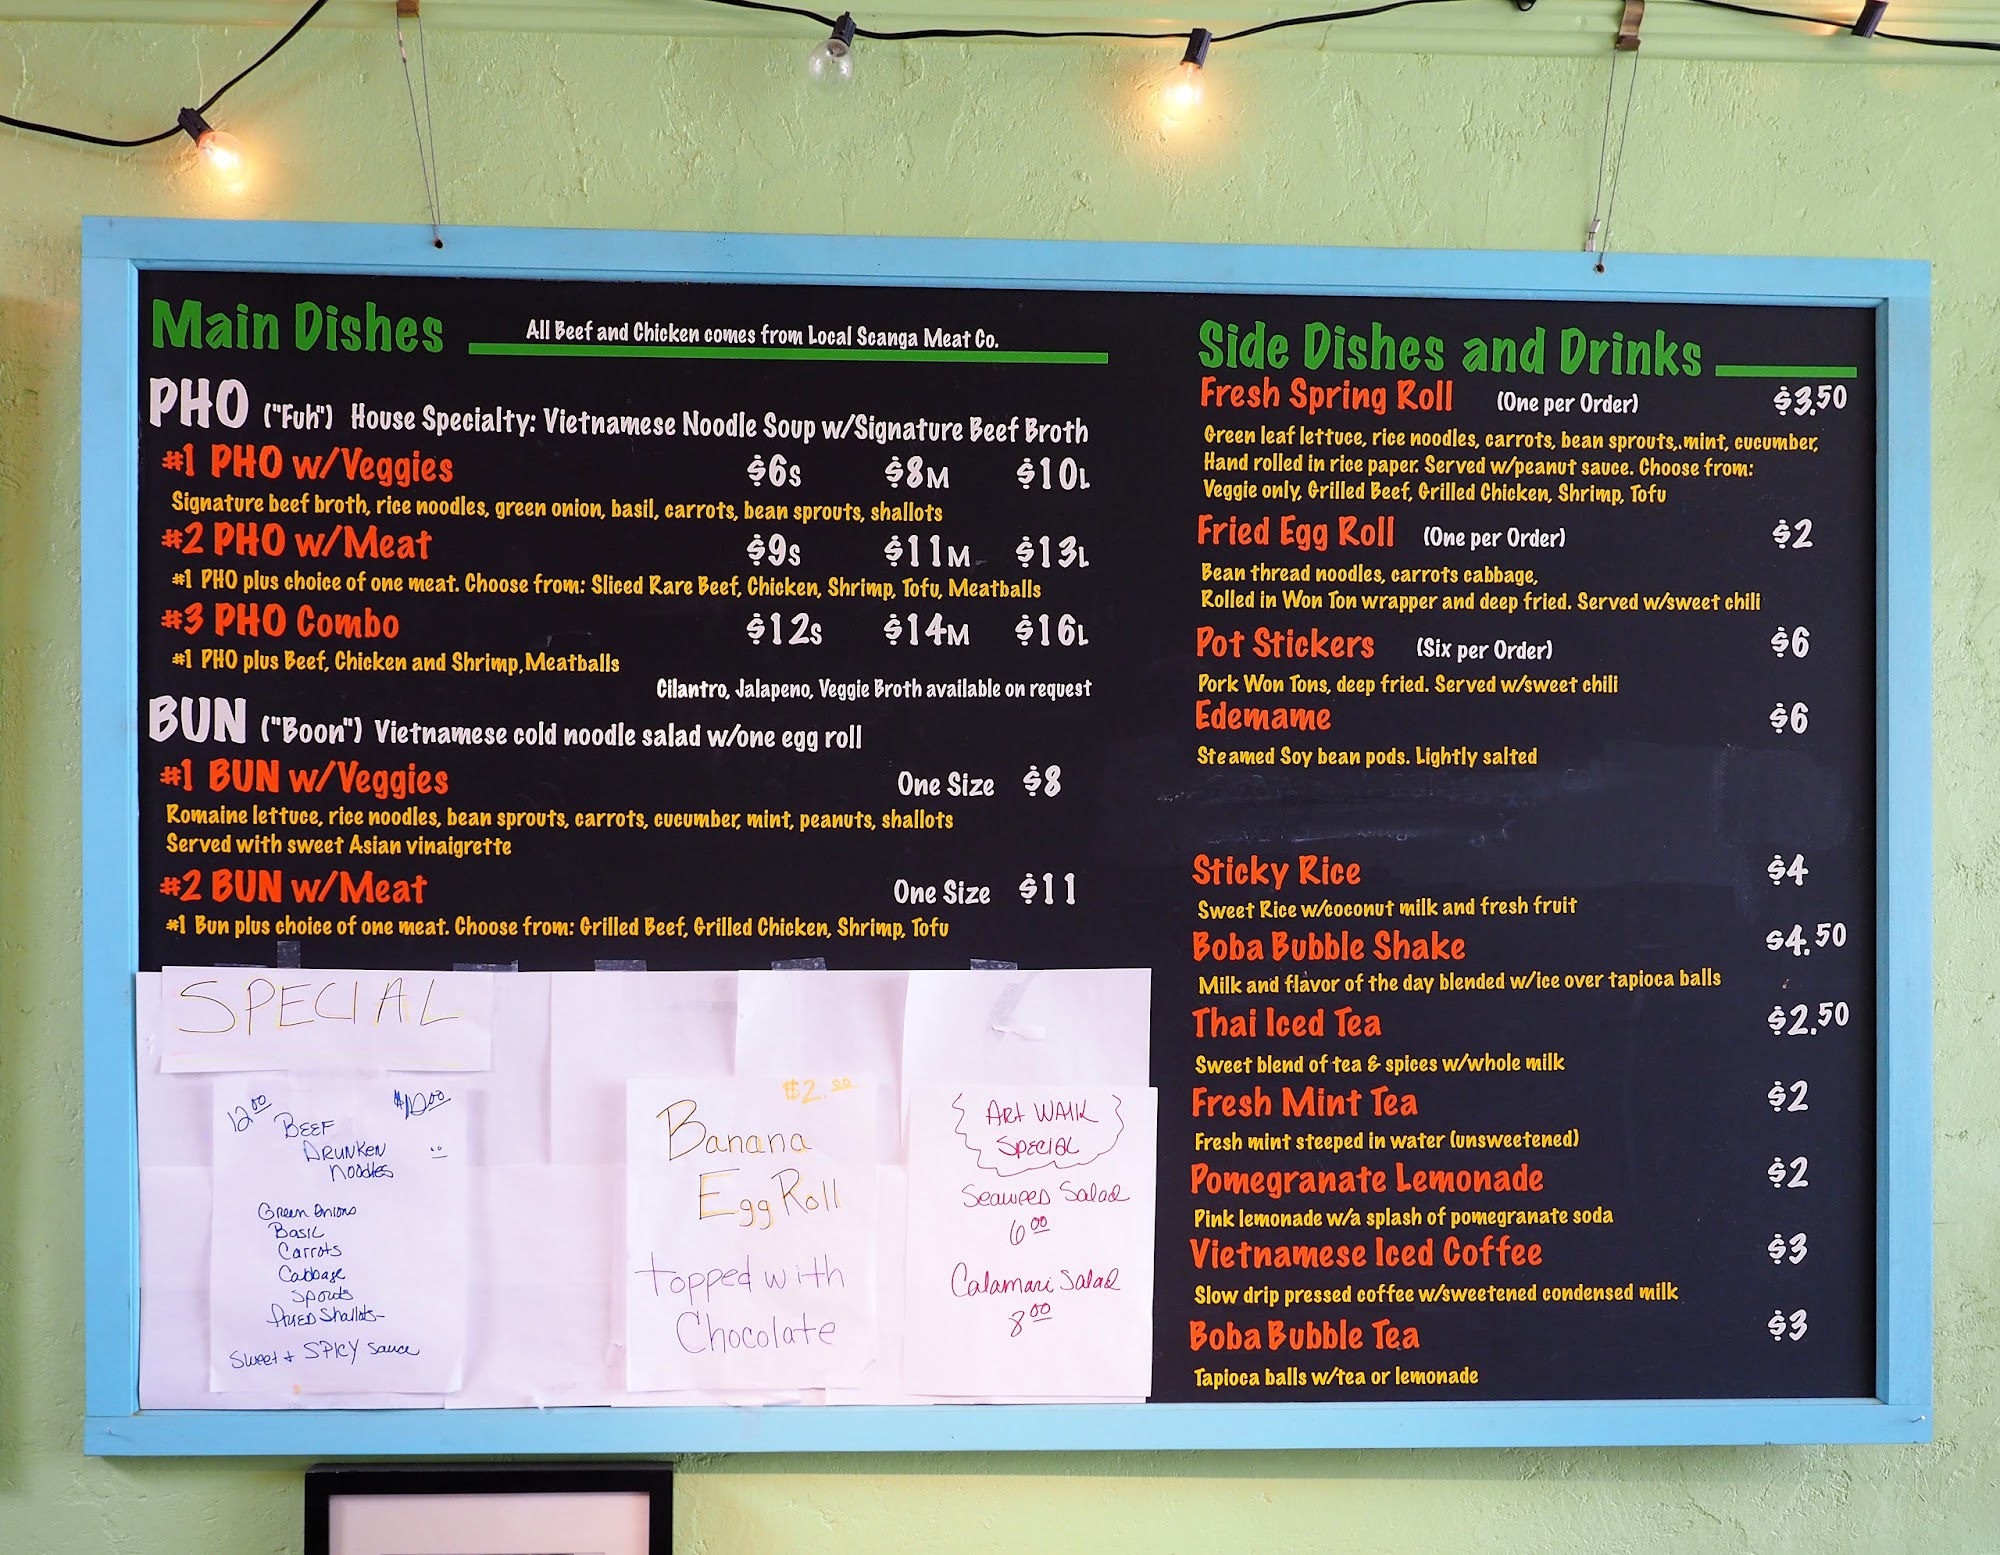 Main Dishes
All Beef and Chicken comes from Local Scanga Meat Co.
PHO ("Fuh") House Specialty: Vietnamese Noodle Soup w/Signature Beef Broth
#1 PHO w/Veggies $6S $8M $10L
Signature beef broth, rice noodles, green onion, basil, carrots, bean sprouts, shallots
#2 PHO w/Meat $9S $11M $13L
#1 PHO plus choice of one meat. Choose from: Sliced Rare Beef, Chicken, Shrimp, Tofu, Meatballs
#3 PHO Combo $12S $14M $16L
#1 PHO plus Beef, Chicken and Shrimp, Meatballs
Cilantro, Jalapeno, Veggie Broth available on request
BUN ("Boon") Vietnamese cold noodle salad w/one egg roll
#1 BUN w/Veggies One Size $8
Romaine lettuce, rice noodles, bean sprouts, carrots, cucumber, mint, peanuts, shallots
Served with sweet Asian vinaigrette
#2 BUN w/Meat One Size $11
#1 Bun plus choice of one meat. Choose from: Grilled Beef, Grilled Chicken, Shrimp, Tofu
SPECIAL
12.00 $10.00
BEEF
DRUNKEN
Noodles
Green Onions
Basil
Carrots
Cabbage
Sprouts
FRIED Shallots
Sweet + SPICY Sauce
$2.00
Banana
Egg Roll
topped with
Chocolate
ART WALK
SPECIAL
SEAWEED Salad
6.00
Calamari Salad
8.00
Side Dishes and Drinks
Fresh Spring Roll (One per Order) $3.50
Green leaf lettuce, rice noodles, carrots, bean sprouts,.mint, cucumber,
Hand rolled in rice paper. Served w/peanut sauce. Choose from:
Veggie only, Grilled Beef, Grilled Chicken, Shrimp, Tofu
Fried Egg Roll (One per Order) $2
Bean thread noodles, carrots cabbage,
Rolled in Won Ton wrapper and deep fried. Served w/sweet chili
Pot Stickers (Six per Order) $6
Pork Won Tons, deep fried. Served w/sweet chili
Edemame $6
Steamed Soy bean pods. Lightly salted
Sticky Rice $4
Sweet Rice w/coconut milk and fresh fruit
Boba Bubble Shake $4.50
Milk and flavor of the day blended w/ice over tapioca balls
Thai Iced Tea $2.50
Sweet blend of tea & spices w/whole milk
Fresh Mint Tea $2
Fresh mint steeped in water (unsweetened)
Pomegranate Lemonade $2
Pink lemonade w/a splash of pomegranate soda
Vietnamese Iced Coffee $3
Slow drip pressed coffee w/sweetened condensed milk
Boba Bubble Tea $3
Tapioca balls w/tea or lemonade